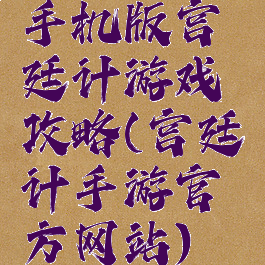 手机版宫
廷计游戏
攻略(宫廷
计手游官
方网站)